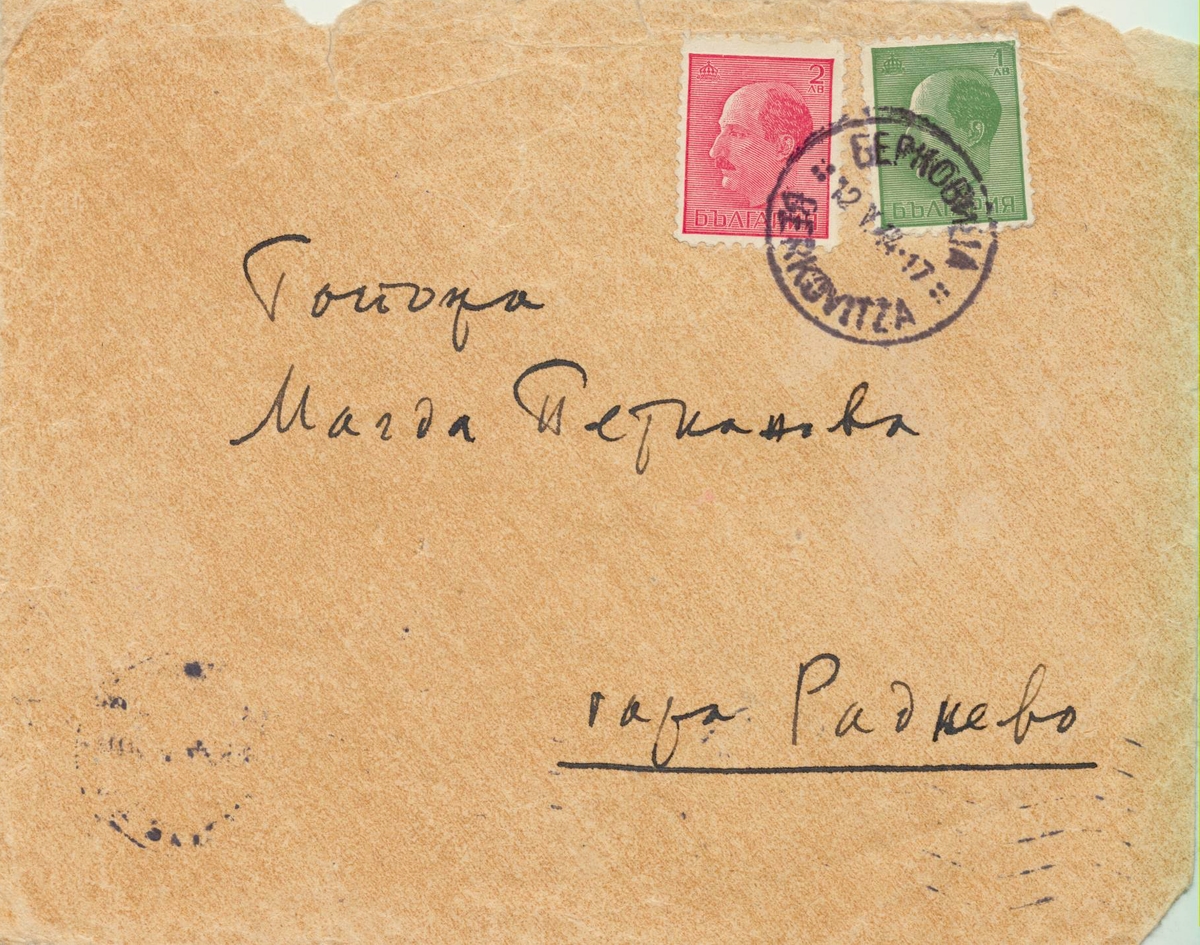 2
ЛВ
БЪЛГАРИЯ
1
ЛВ
БЪЛГАРИЯ
БЕРКОВИЦА
12 V
BERKOVITZA
Госпожа
Магда Петканова
гара Раднево